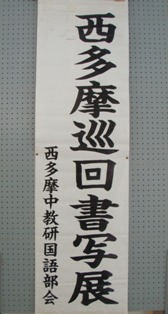 西多摩巡回書写展
西多摩中教研国語部会